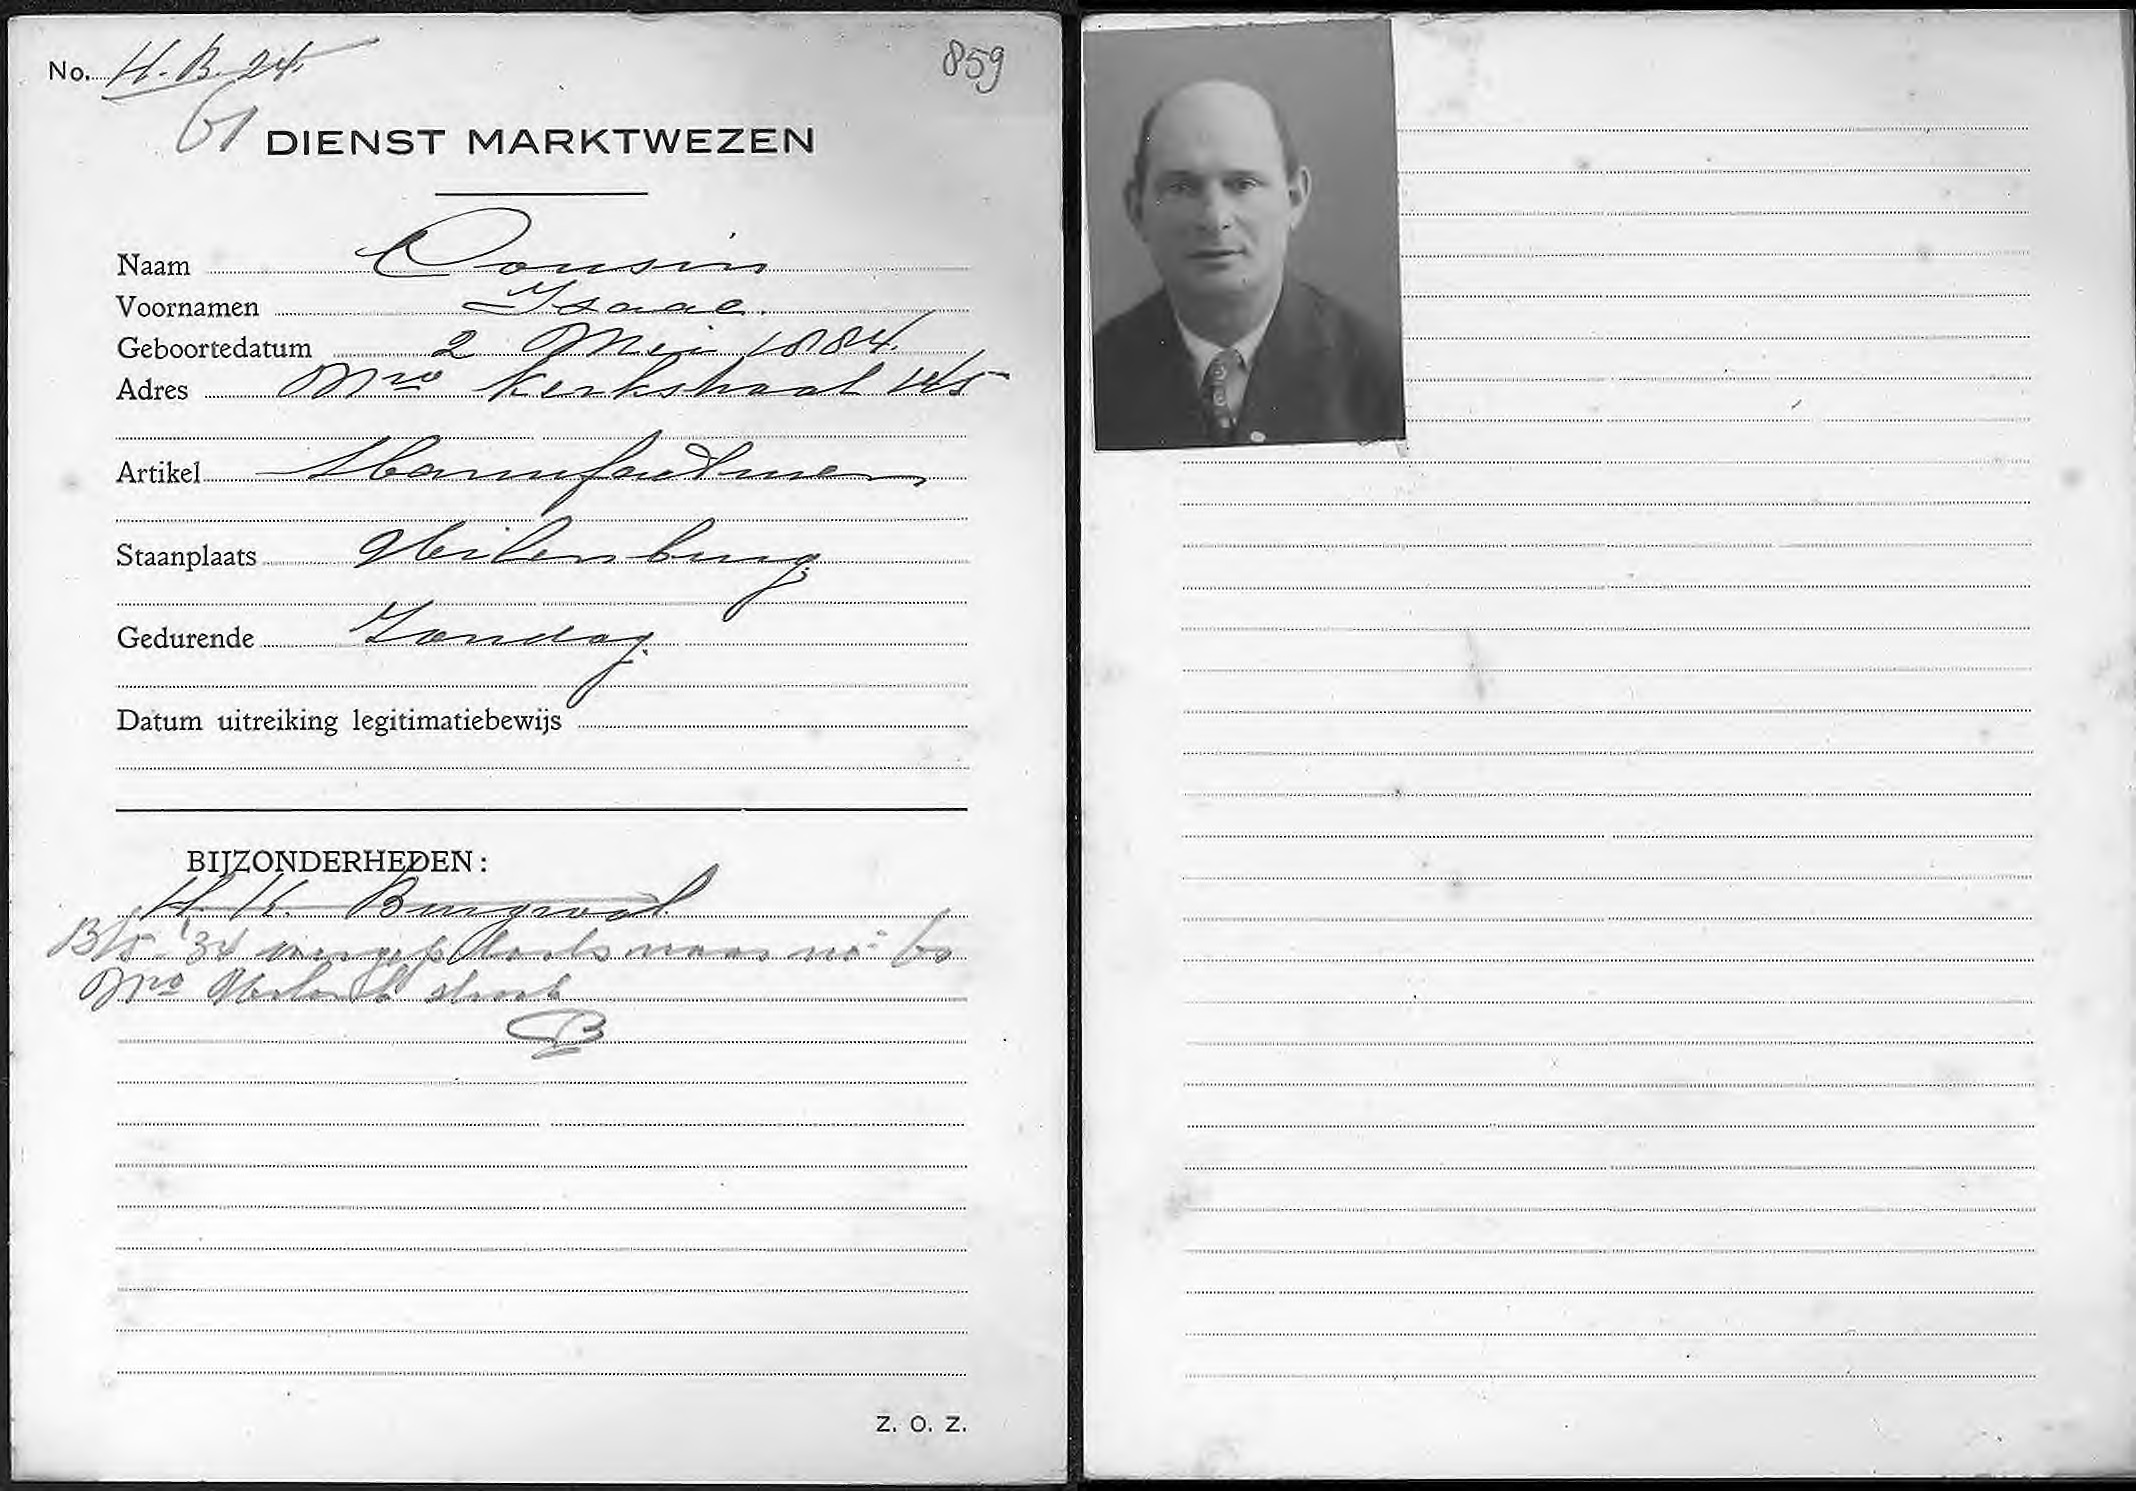 No. H. B. 24
859
61
DIENST MARKTWEZEN
Naam Cousin
Voornamen Isaac.
Geboortedatum 2 Mei 1884.
Adres Nwe Kerkstraat 145
Artikel Manufacturen
Staanplaats Uilenburg.
Gedurende Zondag.
Datum uitreiking legitimatiebewijs
BIJZONDERHEDEN:
H. K. Burgwal.
'34 overgeplaatst naar no 60
Nwe
B
Z. O. Z.